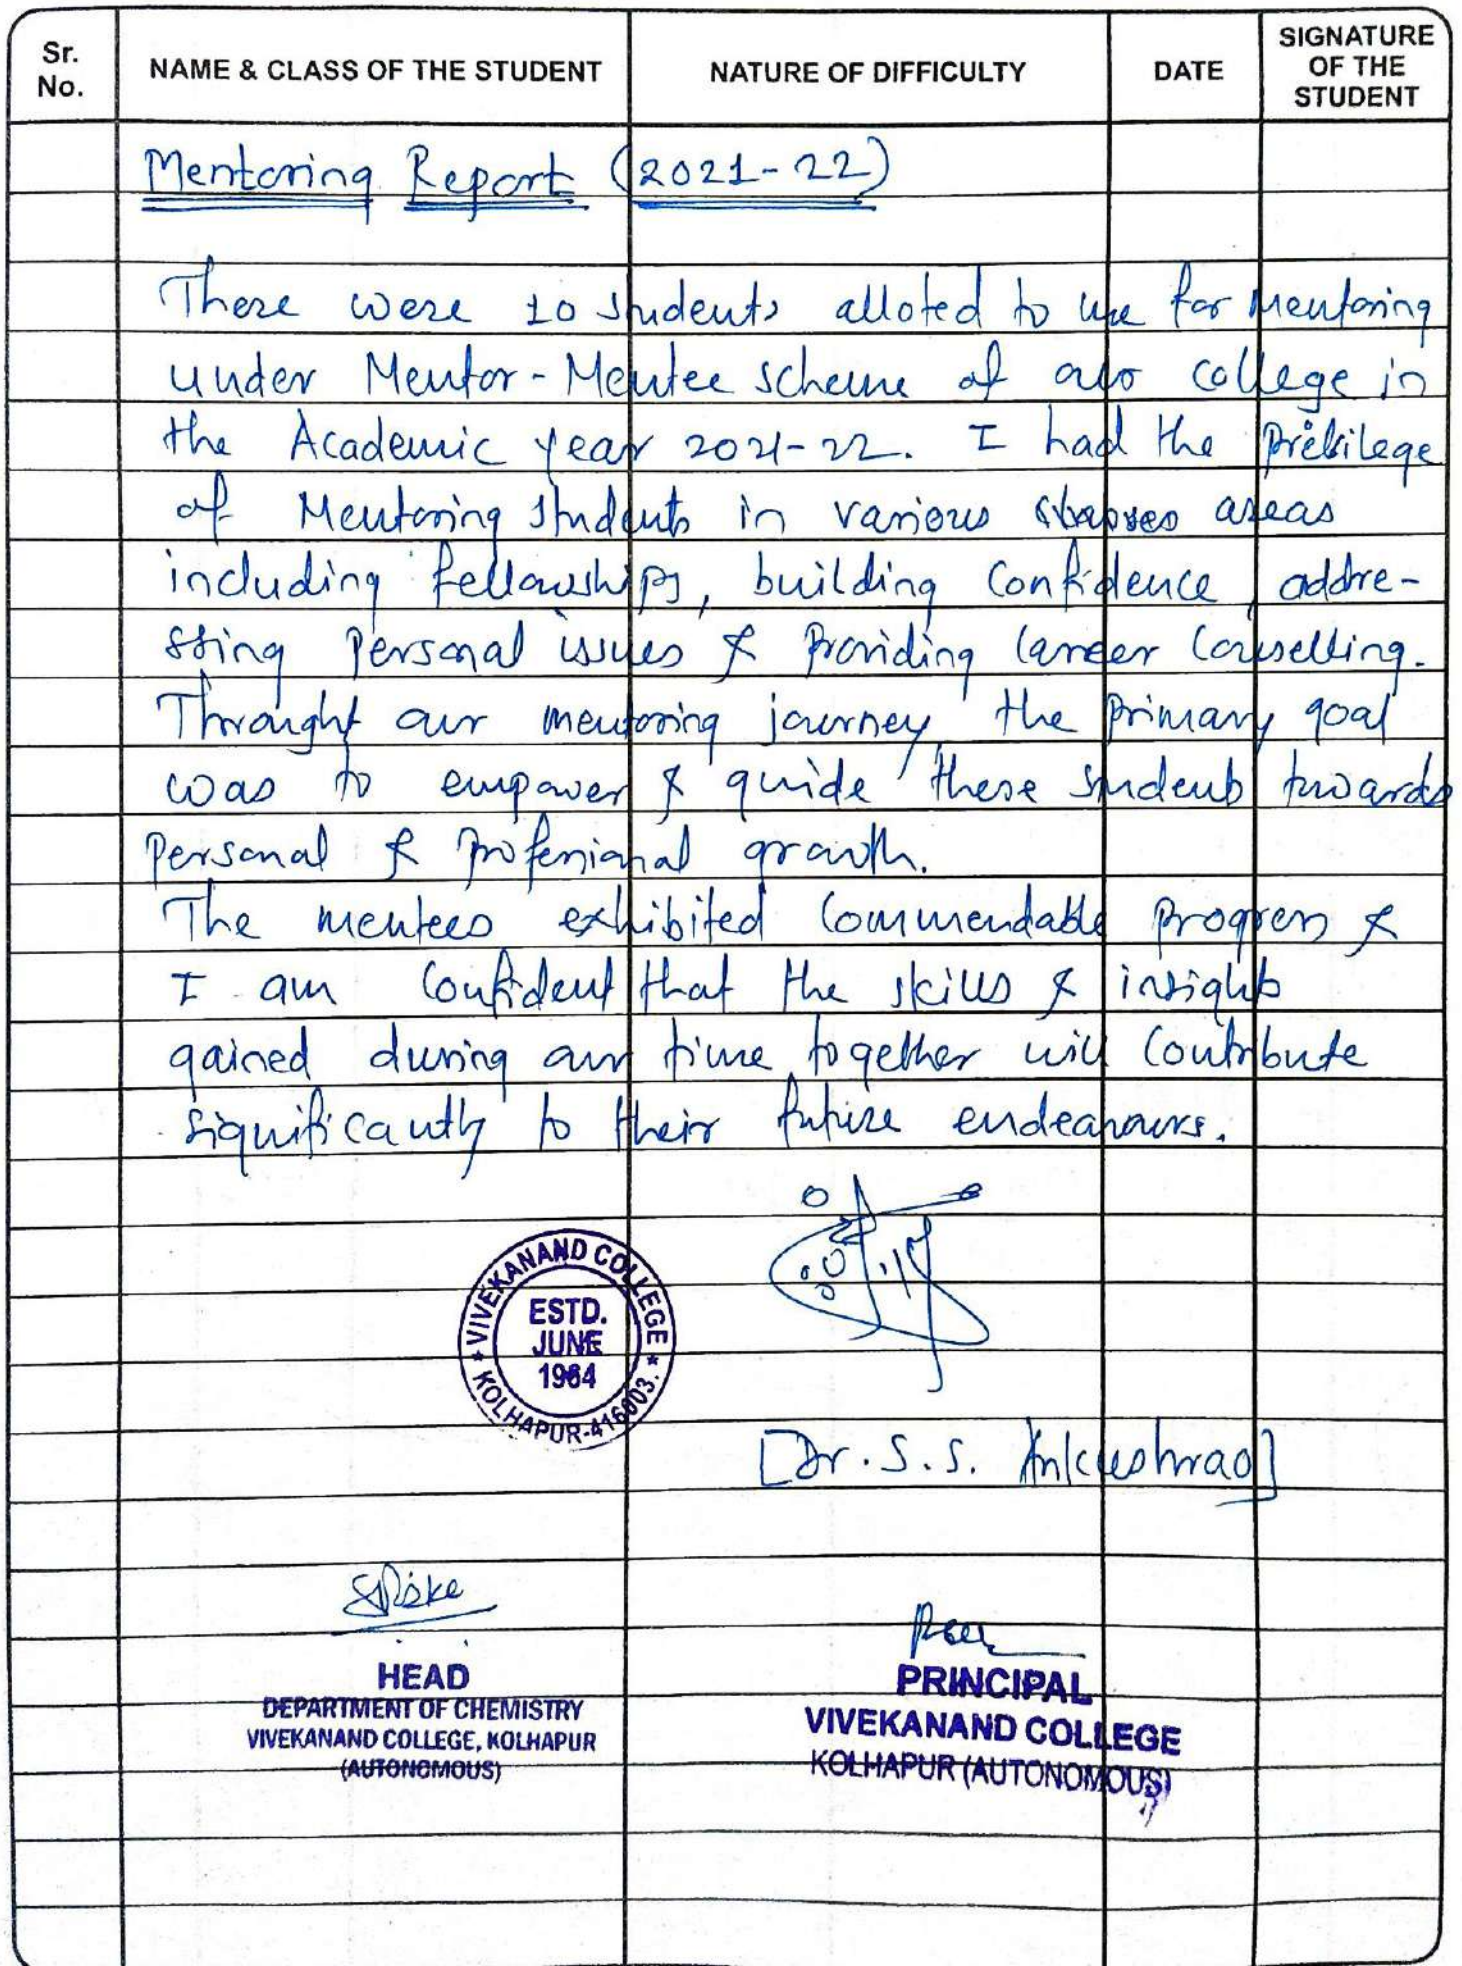 Sr. No.
NAME & CLASS OF THE STUDENT
NATURE OF DIFFICULTY
DATE
SIGNATURE OF THE STUDENT
Mentoring Report (2021-22)
There were 10 students alloted to me for mentoring
under Mentor-Mentee scheme of our college in
the Academic year 2021-22. I had the Previlege
of Mentoring students in various areas
including fellowships, building confidence, addre-
ssing personal issues & Providing career counselling.
Throught our mentoring journey, the primary goal
was to empower & guide these students towards
personal & professional growth.
The mentees exhibited commendable progress &
I am confident that the skills & insights
gained during our time together will contribute
significantly to their future endeavours.
VIVEKANAND COLLEGE
ESTD.
JUNE
1964
KOLHAPUR-416003.
[Dr. S. S. Ankushrao]
HEAD
DEPARTMENT OF CHEMISTRY
VIVEKANAND COLLEGE, KOLHAPUR
(AUTONOMOUS)
PRINCIPAL
VIVEKANAND COLLEGE
KOLHAPUR (AUTONOMOUS)